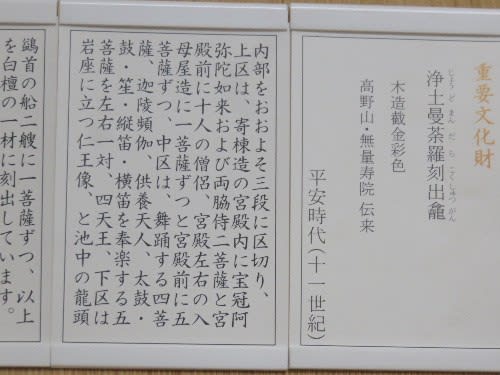 重要文化財
じょうどまんだらこくしゅつがん
浄土曼荼羅刻出龕
木造截金彩色
高野山・無量寿院 伝来
平安時代(十一世紀)
内部をおおよそ三段に区切り、
上区は、寄棟造の宮殿内に宝冠阿
弥陀如来および両脇侍二菩薩と宮
殿前に十人の僧侶、宮殿左右の入
母屋造に一菩薩ずつと宮殿前に五
菩薩ずつ、中区は、舞踊する四菩
薩、迦陵頻伽、供養天人、太鼓・
鼓・笙・縦笛・横笛を奉楽する五
菩薩を左右一対、四天王、下区は
岩座に立つ仁王像、と池中の龍頭
鷁首の船二艘に一菩薩ずつ、以上
を白檀の一材に刻出しています。